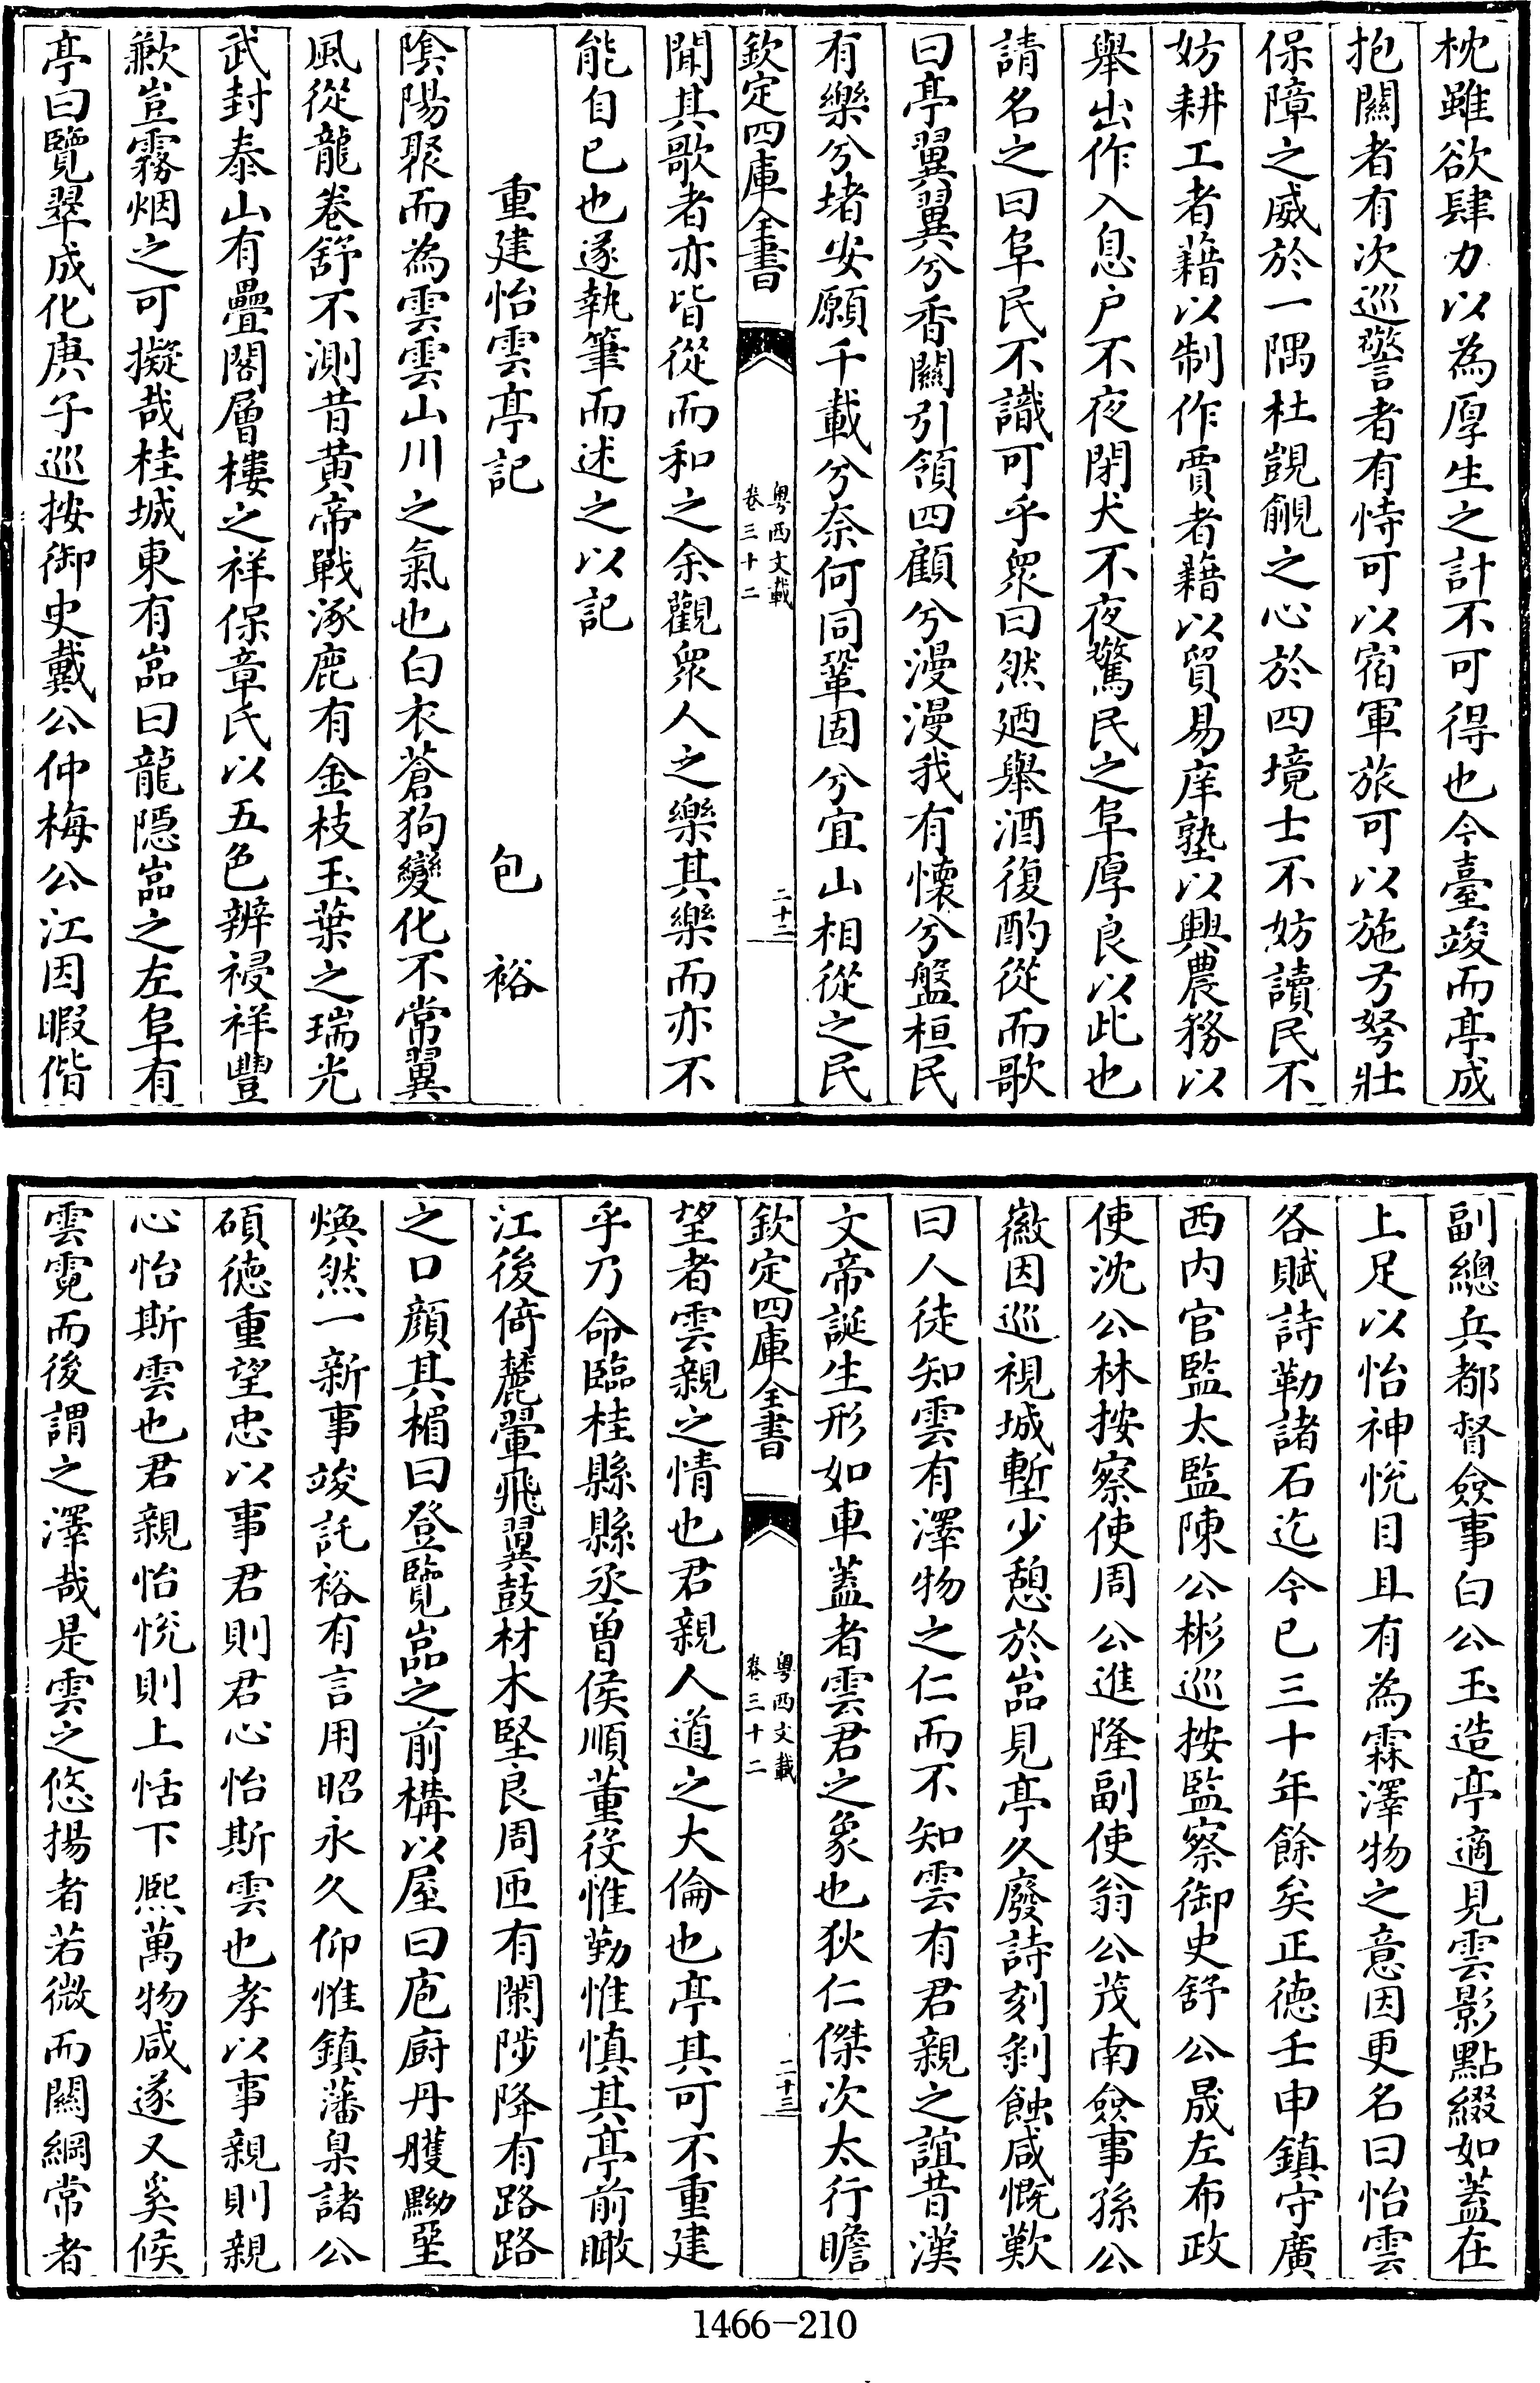 枕雖欲肆力以為厚生之計不可得也今臺竣而亭成
抱關者有次巡警者有恃可以宿軍旅可以施弓弩壯
保障之威於一隅杜覬覦之心於四境士不妨讀民不
妨耕工者藉以制作賈者藉以貿易庠塾以興農務以
舉出作入息户不夜閉犬不夜驚民之阜厚良以此也
請名之曰阜民不識可乎眾曰然廼舉酒復酌從而歌
曰亭翼翼兮香關引領四顧兮漫漫我有懷兮盤桓民
有樂兮堵安願千載兮奈何同鞏固兮宜山相從之民
欽定四庫全書
粤西文載
卷三十二
二十二
聞其歌者亦皆從而和之余觀眾人之樂其樂而亦不
能自已也遂執筆而述之以記
重建怡雲亭記
包裕
陰陽聚而為雲雲山川之氣也白衣蒼狗變化不常翼
風從龍卷舒不測昔黄帝戰涿鹿有金枝玉葉之瑞光
武封泰山有疊閣層樓之祥保章氏以五色辨祲祥豐
歉豈霧烟之可擬哉桂城東有嵓曰龍隱嵓之左阜有
亭曰覽翠成化庚子巡按御史戴公仲梅公江因暇偕
副總兵都督僉事白公玉造亭適見雲影點綴如蓋在
上足以怡神悅目且有為霖澤物之意因更名曰怡雲
各賦詩勒諸石迄今已三十年餘矣正德壬申鎮守廣
西内官監太監陳公彬巡按監察御史舒公晟左布政
使沈公林按察使周公進隆副使翁公茂南僉事孫公
徽因巡視城塹少憩於嵓見亭久廢詩刻剥蝕咸慨歎
曰人徒知雲有澤物之仁而不知雲有君親之誼昔漢
文帝誕生形如車蓋者雲君之象也狄仁傑次太行瞻
欽定四庫全書
粤西文載
卷三十二
二十三
望者雲親之情也君親人道之大倫也亭其可不重建
乎乃命臨桂縣縣丞曽侯順董役惟勤惟慎其亭前瞰
江後倚麓翬飛翼鼓材木堅良周匝有闌陟降有路路
之口顔其楣曰登覽嵓之前構以屋曰庖廚丹雘黝堊
煥然一新事竣託裕有言用昭永久仰惟鎮藩臬諸公
碩徳重望忠以事君則君心怡斯雲也孝以事親則親
心怡斯雲也君親怡悅則上恬下熙萬物咸遂又奚俟
雲霓而後謂之澤哉是雲之悠揚者若微而關綱常者
1466-210